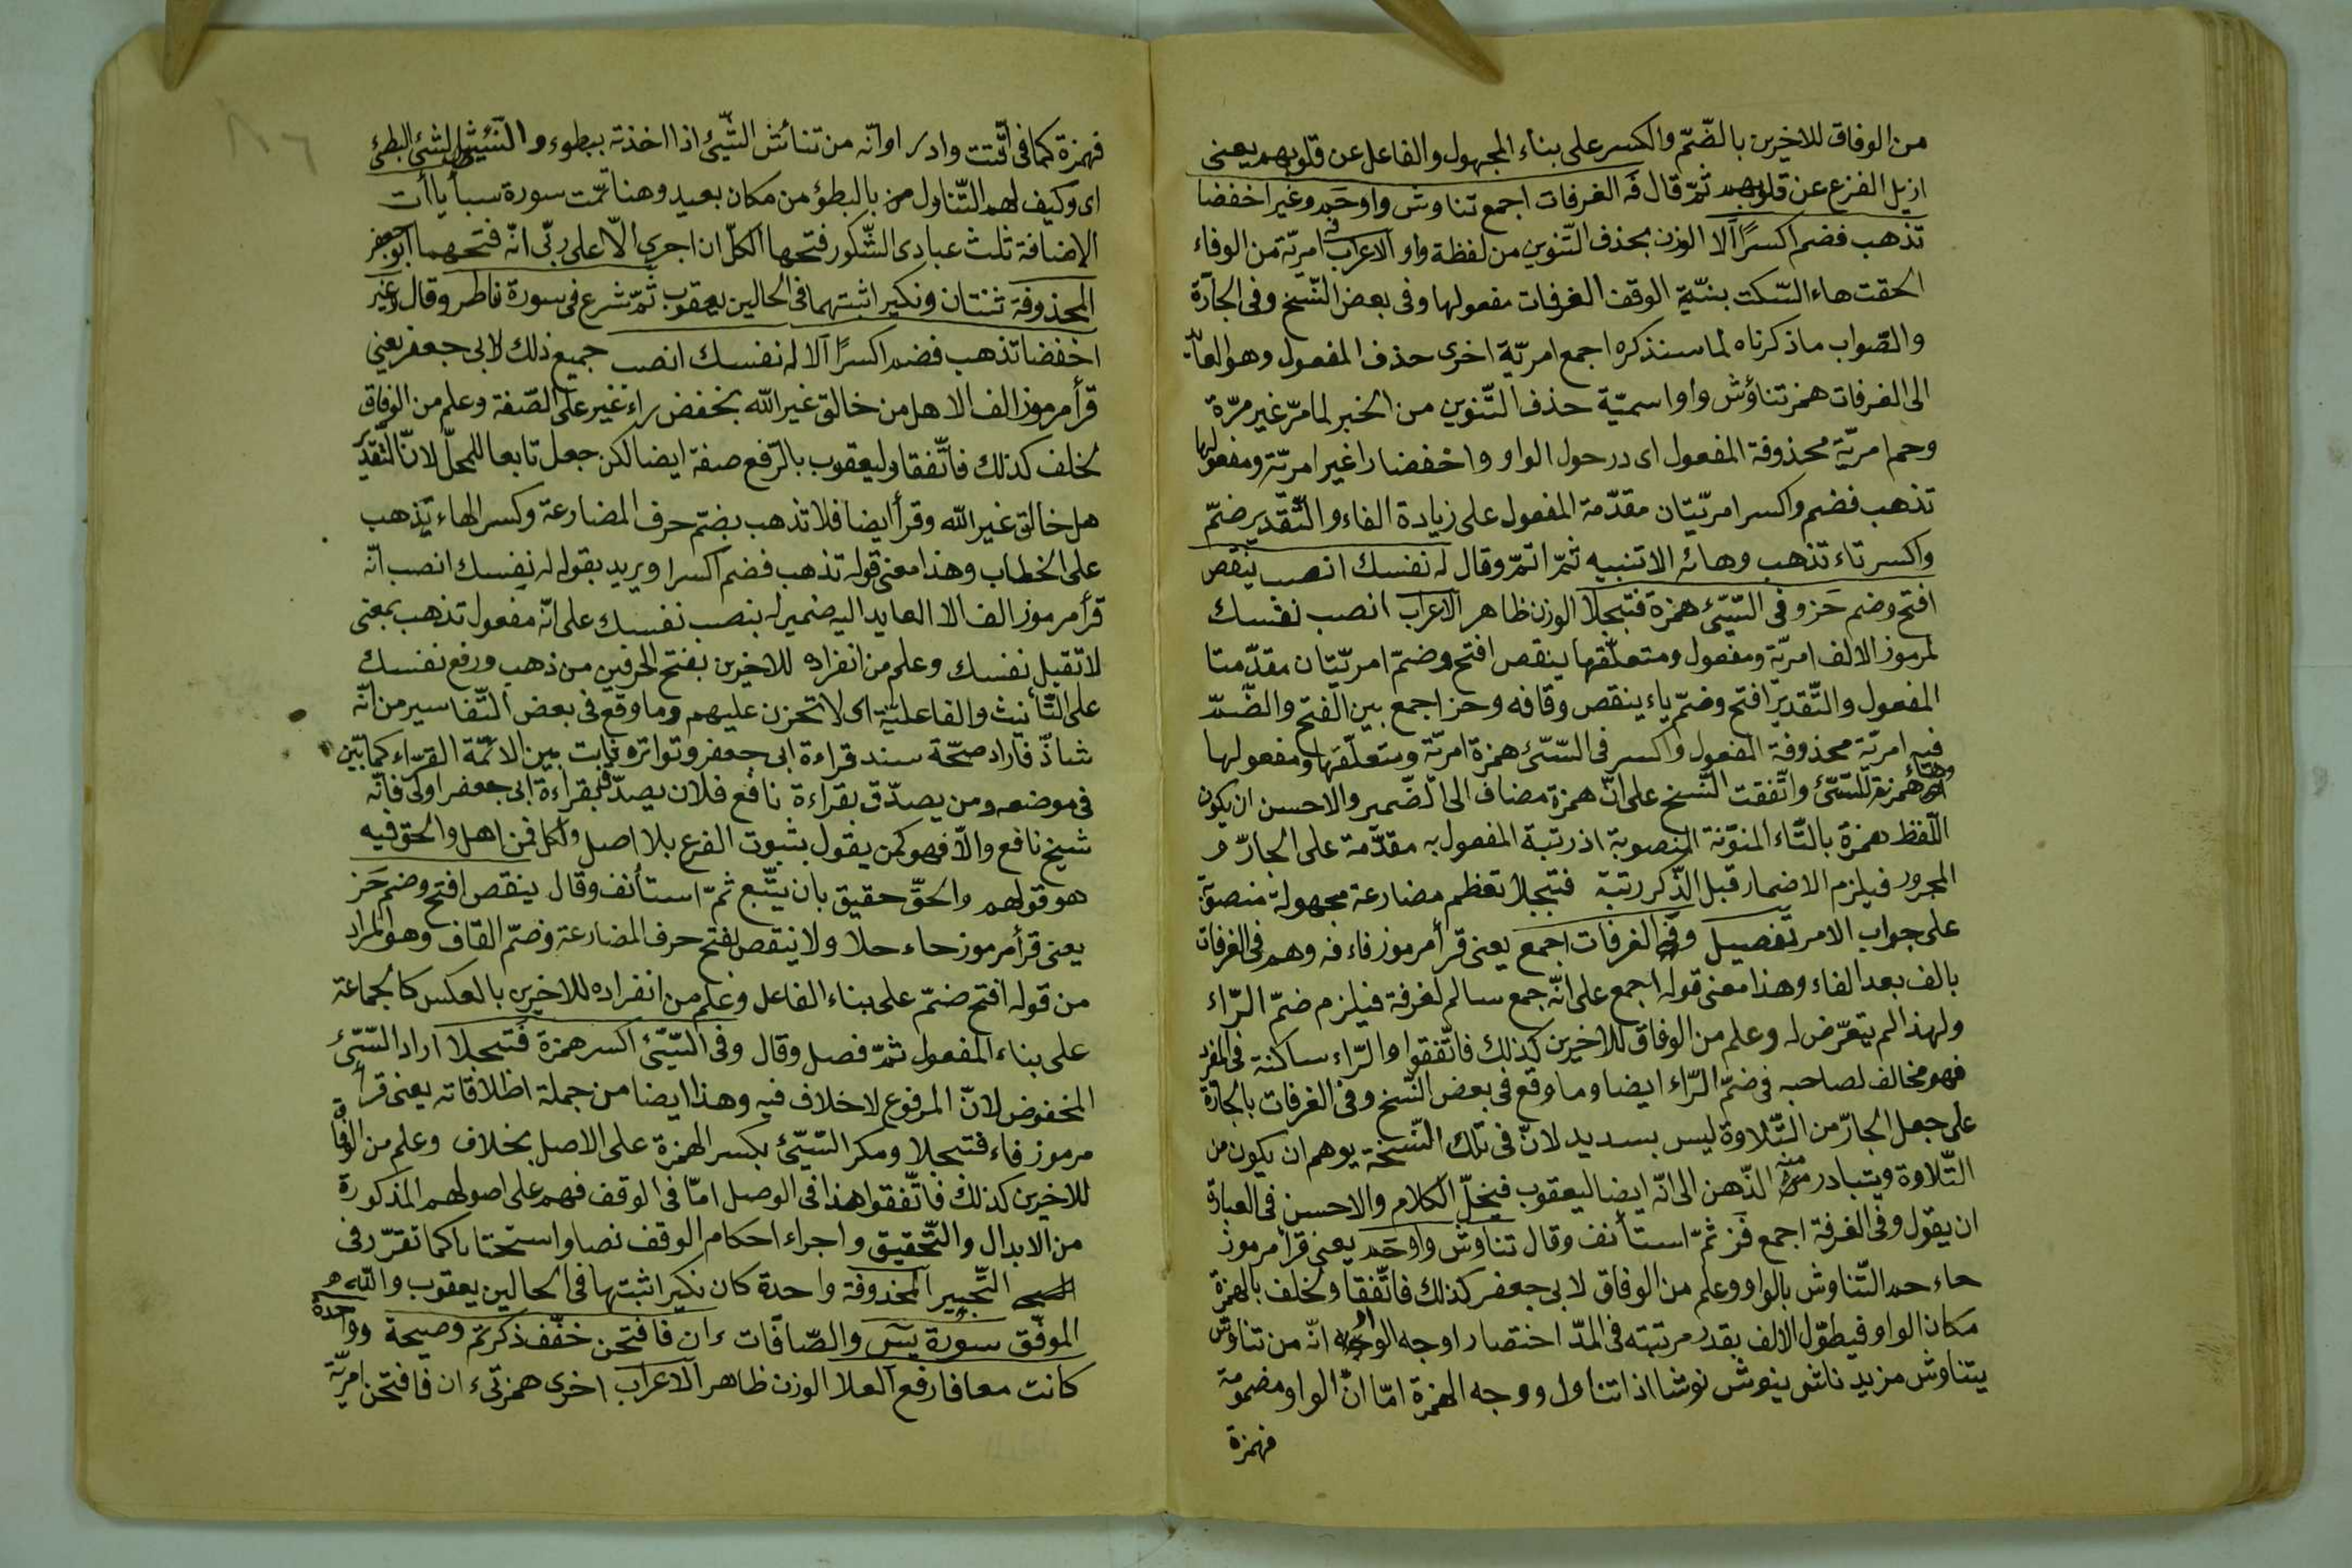 من الوفاق للاخيرن بالضّمّ والكسر على بناء المجهول والفاعل عن قلوبهم يعنى
ازيل الفزع عن قلوبهم ثمّ قال فه الغرفات اجمع تناوش واو حمد وغير اخفضا
تذهب فضم اكسرًا آلا الوزن بحذف التّنوين من لفظة واو الاعراب فه امريّة من الوفاء
الحقت هاء السّكت بنيّة الوقف الغرفات مفعولها وفى بعض النّسخ وفى الجارّة
والصّواب ما ذكرناه لما سنذكره اجمع امريّة اخرى حذف المفعول وهو العائد
الى الغرفات همز تناؤش واو اسميّة حذف التّنوين من الخبر لما مرّ غير مرّة
وحم امريّة محذوفة المفعول اى در حول الواو واخفضا را غير امريّة ومفعولها
تذهب فضم واكسر امريّتان مقدّمة المفعول على زيادة الفاء والتّقدير ضمّ
واكسر تاء تذهب وهائه الا تنبيه ثمّ اتمّ وقال له نفسك انصب ينقص
افتح وضم حز وفى السّيّئ همزة فتبجلا الوزن ظاهر الاعراب انصب نفسك
لمرموز الالف امريّة ومفعول ومتعلّقها ينقص افتح وضمّ امريّتان مقدّمتا
المفعول والتّقدير افتح وضمّ ياء ينقص وقافه وحز اجمع بين الفتح والضّمّ
فيه امريّة محذوفة المفعول واكسر فى السّيّئ همزة امريّة ومتعلّقها ومفعولها
همزته للسّيّئ واتّفقت النّسخ على انّ همزة مضاف الى الضّمير والاحسن ان يكون
اللّفظ همزة بالتّاء المنوّنة المنصوبة اذ رتبة المفعول به مقدّمة على الجارّ و
المجرور فيلزم الاضمار قبل الذّكر رتبة فتبجلا تعظم مضارعة مجهولة منصوبة
على جواب الامر تفصيل وفه الغرفات اجمع يعنى قرأ مرموز فاء فه وهم فى الغرفات
بالف بعد الفاء وهذا معنى قوله اجمع على انّه جمع سالم لغرفة فيلزم ضمّ الرّاء
ولهذا لم يتعرّض له وعلم من الوفاق للاخيرين كذلك فاتّفقوا والرّاء ساكنة فى المفرد
فهو مخالف لصاحبه فى ضمّ الرّاء ايضا وما وقع فى بعض النّسخ وفى الغرفات بالجارّة
على جعل الجارّ من التّلاوة ليس بسديد لانّ فى تلك النّسخة يوهم ان يكون من
التّلاوة ويتبادر منه الذّهن الى انّه ايضا ليعقوب فيخلّ الكلام والاحسن فى العبارة
ان يقول وفى الغرفة اجمع فز ثمّ استأنف وقال تناوش واو حمد يعنى قرأ مرموز
حاء حمد التّناوش بالواو وعلم من الوفاق لابى جعفر كذلك فاتّفقا ولخلف بالهمزة
مكان الواو فيطوّل الالف بقدر مرتبته فى المدّ اختصارا وجه الواو انّه من تناوش
يتناوش مزيد ناش ينوش نوشا اذا تناول ووجه الهمزة امّا انّ الواو مضمومة
فهمزة
٨٦
فهمزة كما فى اقّتت وادر او انّه من تنائش الشّيئ اذا اخذته ببطوء والنّئيش الشّيئ البطئ
اى وكيف لهم التّناول من بالبطؤ من مكان بعيد وهنا تمّت سورة سبأ يا أت
الاضافة ثلث عبادى الشّكور فتحها الكلّ ان اجرى الّا على ربّى انّه فتحهما ابو جعفر
المحذوفة ثنتان ونكير اثبتهما فى الحالين يعقوب ثمّ شرع فى سورة فاطر وقال وغير
اخفضا تذهب فضم اكسرًا آلا له نفسك انصب جميع ذلك لابى جعفر يعنى
قرأ مرموز الف الا هل من خالق غير الله بخفض راء غير على الصّفة وعلم من الوفاق
لخلف كذلك فاتّفقا وليعقوب بالرّفع صفة ايضا لكن جعل تابعا للمحلّ لانّ التّقدير
هل خالق غير الله وقرأ ايضا فلا تذهب بضمّ حرف المضارعة وكسر الهاء يذهب
على الخطاب وهذا معنى قوله تذهب فضم اكسرا ويريد بقوله له نفسك انصب انّه
قرأ مرموز الف الا العايد اليه ضمير له بنصب نفسك على انّه مفعول تذهب بمعنى
لا تقبل نفسك وعلم من انفراده للاخيرن بفتح الحرفين من ذهب ورفع نفسك
على التّأنيث والفاعليّة اى لا تحزن عليهم وما وقع فى بعض التّفاسير من انّه
شاذّ فاراد صحّة سند قراءة ابى جعفر وتواتره ثابت بين الائمّة القرّاء كما بيّن
فى موضعه ومن يصدّق بقراءة نافع فلان يصدّق بقراءة ابى جعفر اولى فانّه
شيخ نافع والّا فهو كمن يقول بثبوت الفرع بلا اصل ولكلّ فن اهل والحقّ فيه
هو قولهم والحقّ حقيق بان يتّبع ثمّ استأنف وقال ينقص افتح وضم حز
يعنى قرأ مرموز حاء حلا ولا ينقص بفتح حرف المضارعة وضمّ القاف وهو المراد
من قوله افتح ضمّ على بناء الفاعل وعلم من انفراده للاخيرن بالعكس كالجماعة
على بناء المفعول ثمّ فصل وقال وفى السّيّئ اكسر همزة فتبجلا اراد السّيّئ
المخفوض لانّ المرفوع لا خلاف فيه وهذا ايضا من جملة اطلاقاته يعنى قرأ
مرموز فاء فتبجلا ومكر السّيّئ بكسر الهمزة على الاصل بخلاف وعلم من الوفاق
للاخيرن كذلك فاتّفقوا هذا فى الوصل امّا فى الوقف فهم على اصولهم المذكورة
من الابدال والتّحقيق واجراء احكام الوقف نصا واستحبابا كما تقرّر فى
التّحبير المحذوفة واحدة كان نكير اثبتها فى الحالين يعقوب والله
الموفّق سورة يس والصّافّات ءان فافتحن خفّف ذكرتم وصيحة وواحدة
كانت معا فارفع العلا الوزن ظاهر الاعراب اخرى همزتىء ان فافتحن امريّة